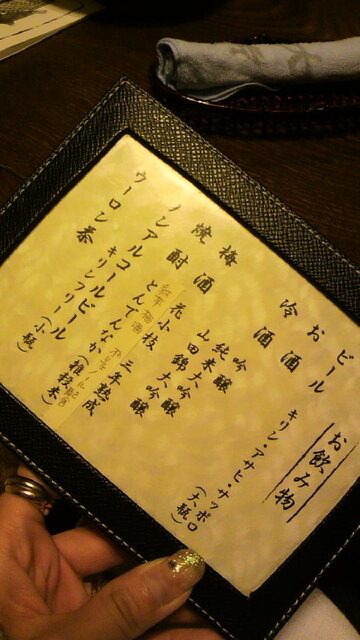 お飲み物
ビール キリン・アサヒ・サッポロ(大瓶)
お酒
冷酒 吟醸
純米大吟醸
山田錦大吟醸
梅酒 花小枝 三年熟成
焼酎 とんてんなか(雑穀米)
ノンアルコールビール キリンフリー(小瓶)
ウーロン茶